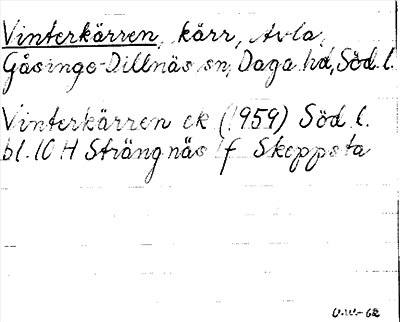 Vinterkärren, kärr, Avla,
Gåsinge-Dillnäs sn, Daga hd, Söd. l.
Vinterkärren ek (1959) Söd. l.
bl. 10 H Strängnäs f Skeppsta
U.W.-62